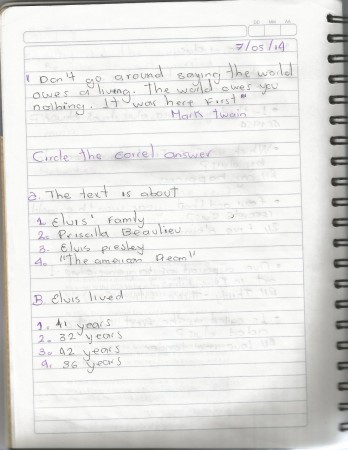 7/05/14
" Don't go around saying the world
owes a living. The world owes you
nothing. It was here first"
Mark Twain
Circle the correct answer
a. The text is about
1. Elvis' Family
2. Priscilla Beaulieu
3. Elvis presley
4. "The american Dream"
B. Elvis lived
1. 41 years
2. 32 years
3. 42 years
4. 36 years